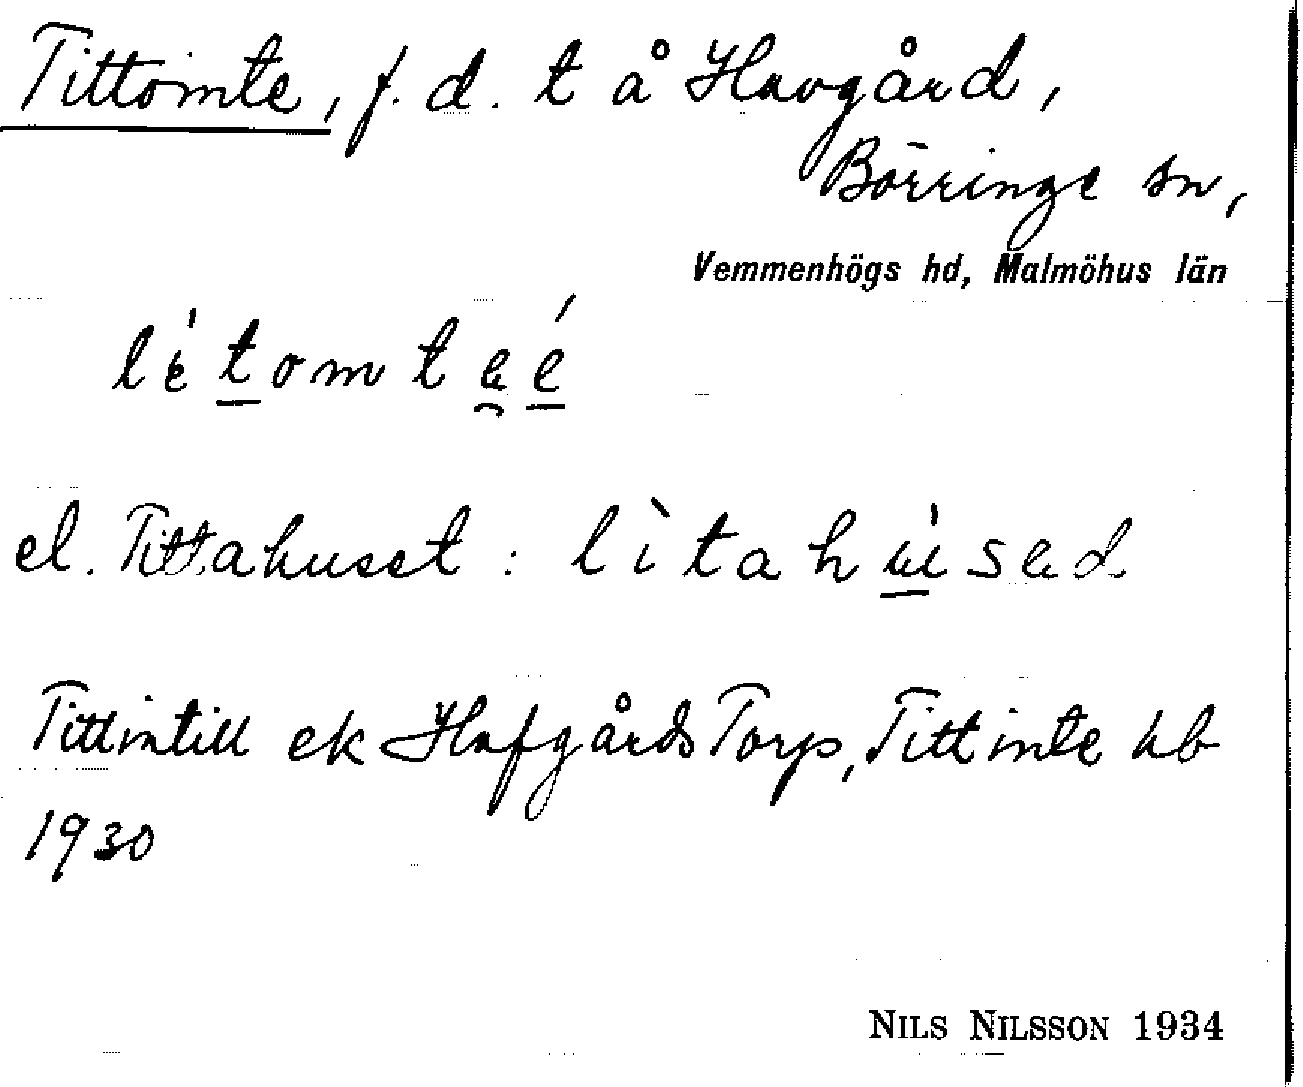 Tittomte, f. d. t å Havgård,
Börringe sn,
Vemmenhögs hd, Malmöhus län
el. Tittahuset :
Tittintill ek Hafgårds Torp, Tittinte hb
1930
NILS NILSSON 1934